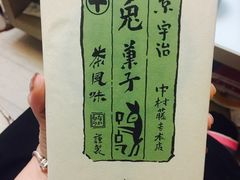 京宇治
中村藤吉本店
兎菓子
茶風味
謹製